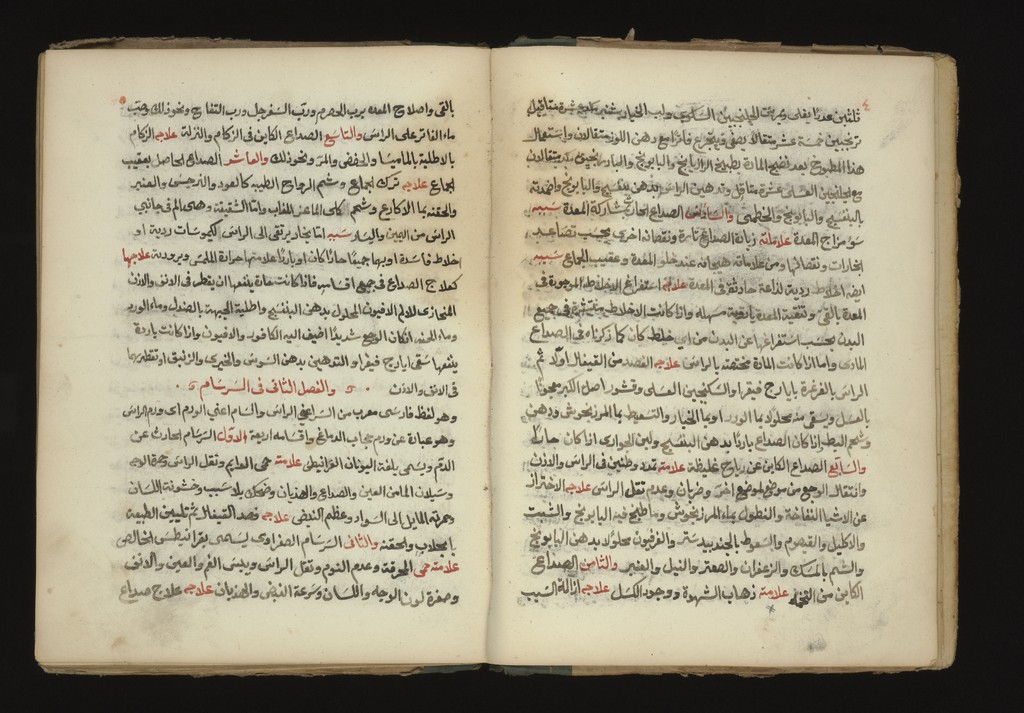 ٤
ثلثين عددا يغلى ويمرس الجلنجبين السكرى ولب الخيار شنبر عشرة مثاقيل
ترنجبين خمسة عشر مثقالا يصفى ويتجرع فاترا مع دهن اللوز مثقالان واستعمال
هذا المطبوخ بعد نضج المادة بطبيخ الرازيانج والبابونج مثقالان
مع الجلنجبين العسلى عشرة مثاقيل وتدهين الراس بدهن بنفسج والبابونج واضمدته
بالبنفسج والبابونج والخطمى والسادس الصداع الحادث بمشاركة المعدة سببه
سو مزاج المعدة علاماته زيادة الصداع تارة ونقصانه اخرى بحسب تصاعد
البخارات ونقصانها ومن علاماته هيجانه عند خلو المعدة وعقيب الجماع سببه
ايضه اخلاط ردية لذاعة حادثة فى المعدة علاجه استفراغ الاخلاط الموجودة فى
المعدة بالقى وتنقية المعدة بادوية مسهله واذا كانت الاخلاط فى جميع
البدن يجب استفراغها عن البدن من اى خلط كان كما ذكرناه فى الصداع
المادى واما اذا كانت المادة مختصة بالراس علاجه الفصد من القيفال اولا ثم
الراس بالغرغرة بايارج فيقرا والسكنجبين العسلى وقشور اصل الكبر معجونا
بالعسل ويسقى منه محلولا بما الورد او بما الخيار والتسعيط بما المرزنجوش ودهن
وشحم البط اذا كان الصداع باردا بدهن البنفسج ولبن الجوارى اذا كان حارا
والسابع الصداع الكاين عن رياح غليظة علامته تمدد وطنين فى الراس والاذن
وانتقال الوجع من موضع لموضع اخر وضربان وعدم ثقل الراس علاجه الاحتراز
عن الاشيا النفاخة والنطول بماء المرزنجوش وما طبخ فيه البابونج والشبت
والاكليل والقيصوم والسعوط بالجندبيدستر والفرفيون محلولا بدهن البابونج
والشم بالمسك والزعفران والصعتر والنيل والعنبر والثامن الصداع
الكاين من التخمه علامته ذهاب الشهوة ووجود الكسل علاجه ازالة السبب
٥
بالقى واصلاح المعده برب الحصرم ورب السفرجل ورب التفاح ونحو ذلك وصب
ماء الفاتر على الراس والتاسع الصداع الكاين فى الزكام والنزلة علاجه الزكام
بالاطلية بالماميثا والحضض والمر ونحو ذلك والعاشر الصداع الحاصل بعقيب
الجماع علاجه ترك الجماع وشم الروايح الطيبه كالعود والنرجس والعنبر
والحقنه بما الاكارع وشحم كلى الماعز المذاب واما الشقيقة وهى الم فى جانبى
الراس من اليمين واليسار سببه اما بخار يرتقى الى الراس كيموسات ردية او
اخلاط فاسدة اوبها جميعا حارا كان او باردا علامتها حرارة الملمس وبرودته علاجها
كعلاج الصداع فى جميع اقسامه فاذا كانت حارة ينفعها ان يقطر فى الانف والاذن
المحازى للالم الافيون المحلول بدهن البنفسج واطلية الجبهة بالصندل وماء الورد
وماء الخس اذا كان الوجع شديدا اضيف اليه الكافور والافيون واذا كانت باردة
ينفعها سقى ايارج فيقرا والتدهين بدهن السوسن والخيرى والزنبق او تقطيرها
فى الانف والاذن والفصل الثانى فى السرسام
وهو لفظ فارسى معرب من السر اعنى الراس والسام اعنى الورم اى ورم الراس
وهو عبارة عن ورم حجاب الدماغ واقسامه اربعة الاول السرسام الحادث عن
الدم ويسمى بلغة اليونان القرانيطس علامته حمى الدايم وثقل الراس وحمرة الوجه
وسيلان الما من العين والصداع والهذيان وضحك بلا سبب وخشونة اللسان
وحمرته المايل الى السواد وعظم النبض علاجه فصد القيفال ثم تليين الطبيعة
بالجلاب والحقنة والثانى السرسام الصفراوى يسمى بقرانيطس الخالص
علامته حمى المحرقة وعدم النوم وثقل الراس ويبس الفم والعين والانف
وصفرة لون الوجه واللسان وسرعة النبض والهذيان علاجه علاج صداع